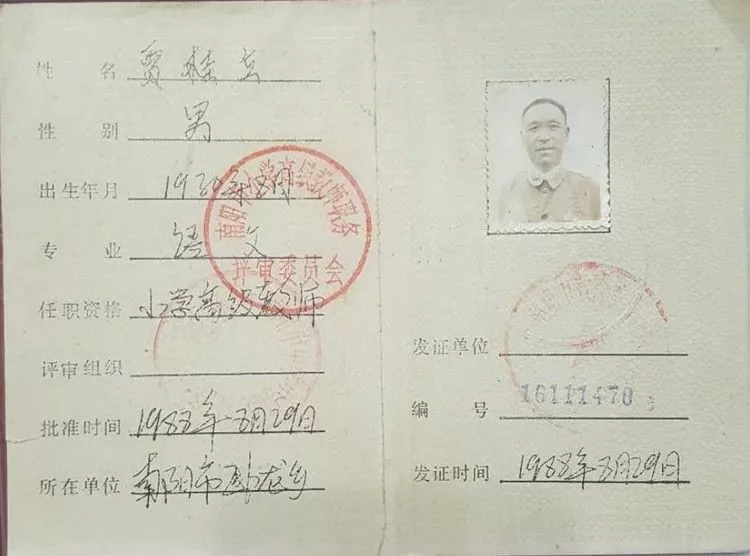 姓名 贾桂立
性别 男
出生年月 1930年8月
专业 语文
任职资格 小学高级教师
评审组织
批准时间 1988年8月29日
所在单位 南阳市卧龙乡
评审委员会
发证单位
编号 16111470
发证时间 1988年8月29日